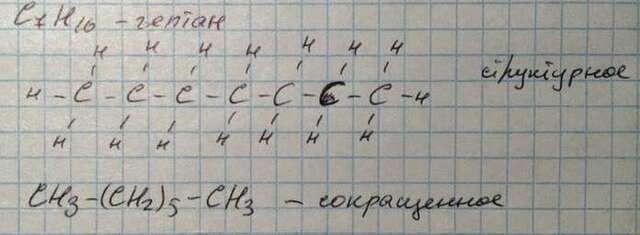 C7H16 - гептан
H H H H H H H
H - C - C - C - C - C - C - C - H
H H H H H H H
структурное
CH3-(CH2)5-CH3 - сокращенное